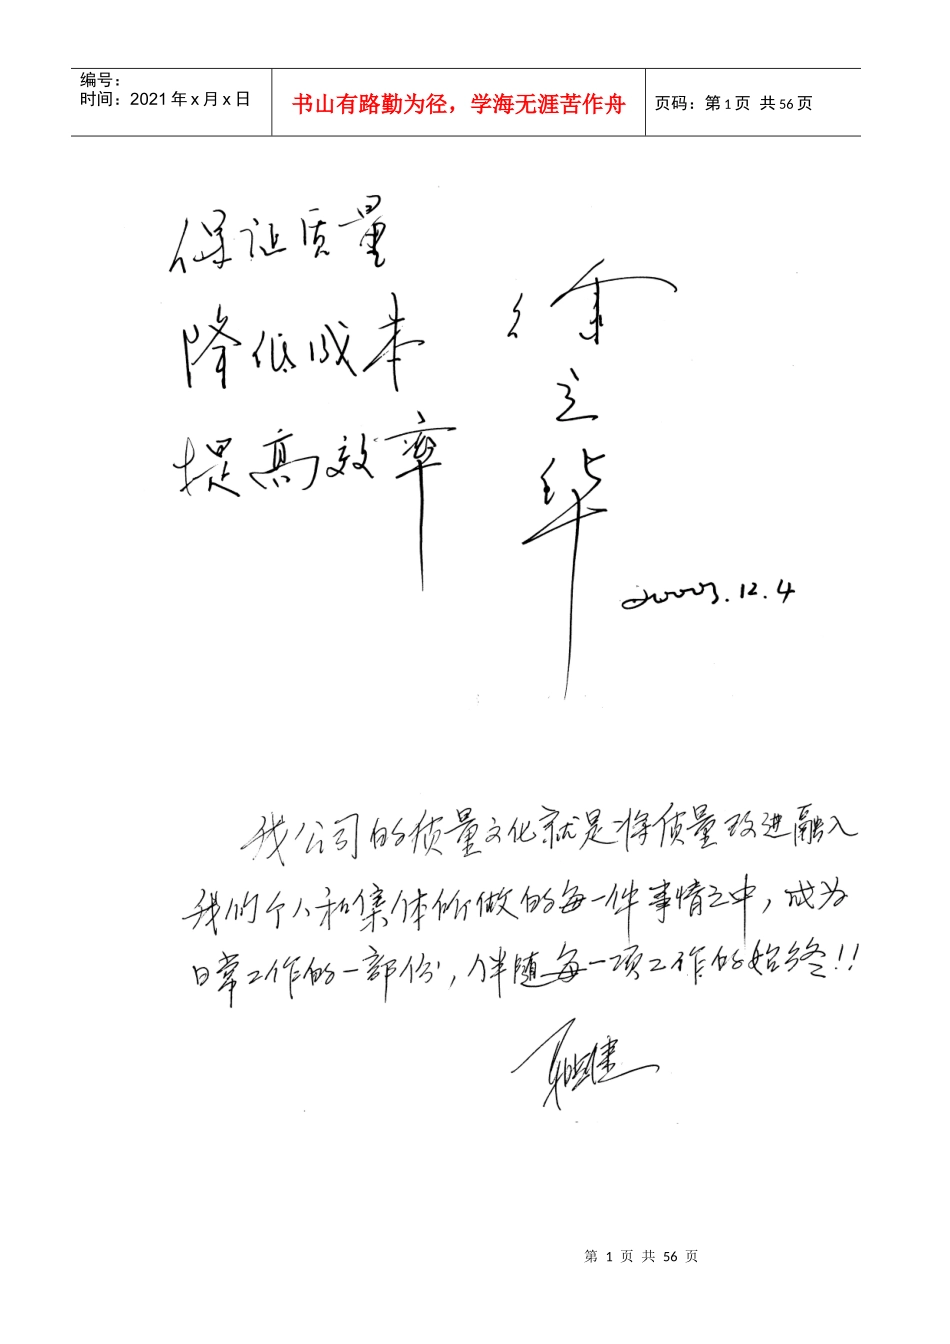 编号：
时间：2021年x月x日
书山有路勤为径，学海无涯苦作舟
页码：第1页 共56页
保证质量
降低成本
提高效率
徐立华
12.4
我公司的质量文化就是将质量改进融入
我们个人和集体所做的每一件事情之中，成为
日常工作的一部份，伴随每一项工作的始终！！
第 1 页 共 56 页